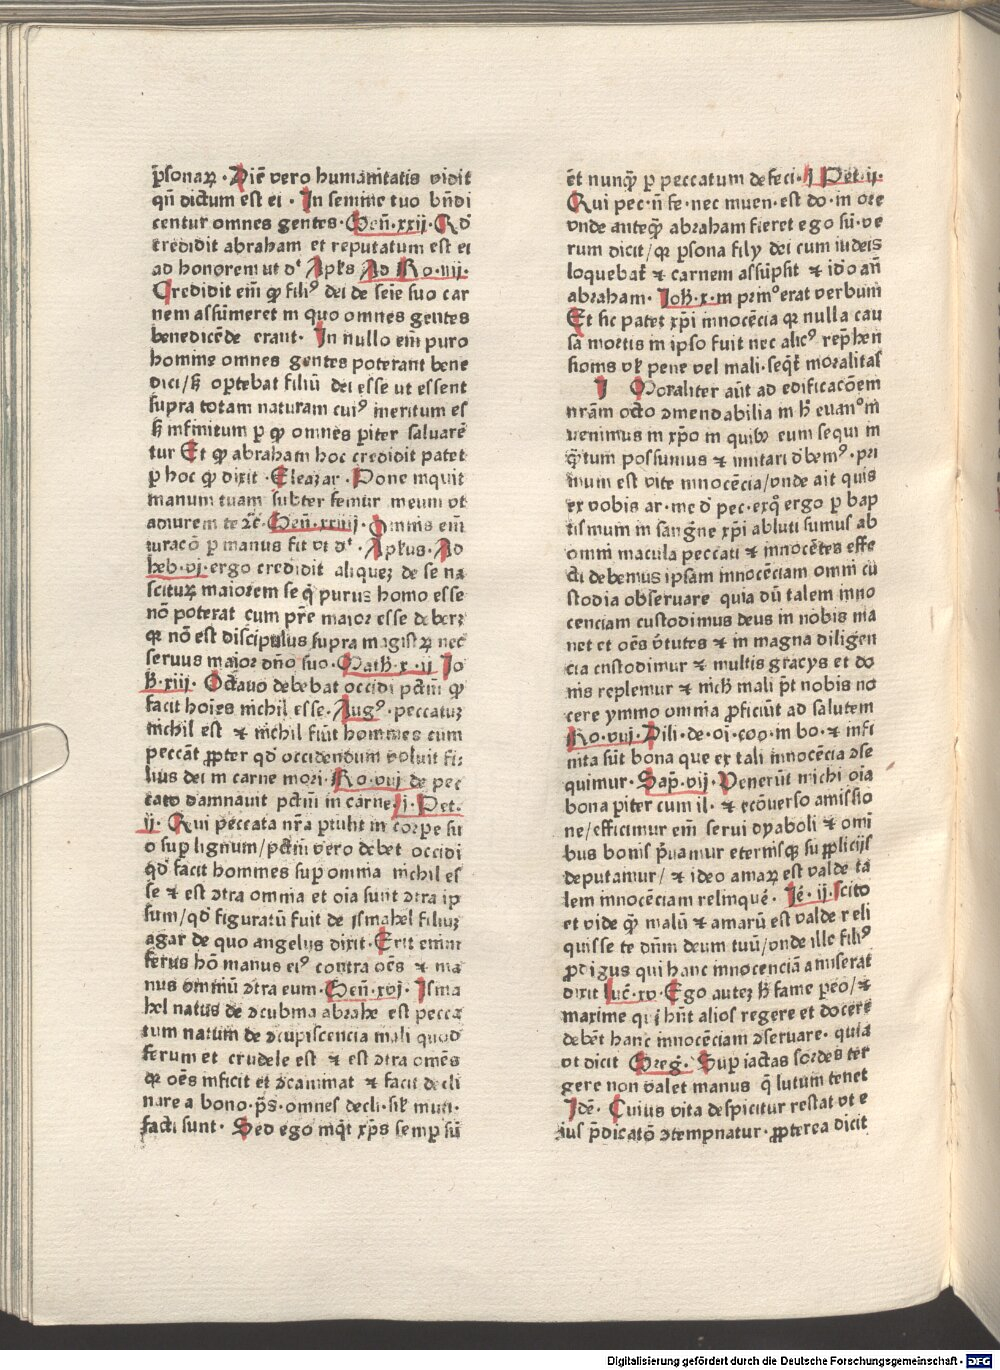 p̄sonaꝝ · Diē vero humanitatis vidit
qn̄ dictum est ei · In semine tuo bn̄di
centur omnes gentes · Gen̄ · xxij · Ad
credidit abraham et reputatum est ei
ad honorem ut dꝰ Apl̄s Ad Ro · iiij ·
Credidit em̄ qp filiꝰ dei de seīe suo car
nem assūmeret in quo omnes gentes
benedicēde erant · In nullo em̄ puro
homine omnes gentes poterant bene
dici / ꝫ optebat filiū dei esse ut essent
supra totam naturam cuiꝰ meritum es
ꝫ infinitum p qp omnes piter saluarē
tur Et qp abraham hoc credidit patet
p hoc qp dixit · Eleazar · Pone inquit
manum tuam subter femur meum vt
adiurem te ⁊c̄ · Gen̄ · xxiiij · Omnis em̄
iuracō p manus fit vt dꝰ · Aplus · Ad
heb · vj · ergo credidit aliqueꝫ de se na
sciturꝫ maiorem se q̄ purus homo esse
nō poterat cum pr̄e maior esse deberꝫ
qꝛ nō est discipulus supra magistꝝ nec
seruus maior dn̄o suo · Math · x · ij Jo
h̄ · xiii · Octauo debebat occidi pctm̄ qp
facit hoīes nichil esse · Augꝰ · peccatuꝫ
nichil est ⁊ nichil fiūt homines cum
peccāt ꝓpter qd̄ occidendum voluit fi:
lius dei in carne mori · Ro · viij de pec
cato damnauit pctm̄ in carne · j · Pet ·
ij · Qui peccata nr̄a ptulit in corpe su
o sup lignum / pctm̄ vero debet occidi
qd̄ facit homines sup omnia nichil es
se ⁊ est ɔtra omnia et oīa sunt ɔtra ip
sum / qd̄ figuratū fuit de Ismahel filiuꝫ
agar de quo angelus dixit · Erit enim
ferus hō manus eiꝰ contra oēs ⁊ ma
nus omniū ɔtra eum · Gen̄ · xvj · Isma
hel natus de ɔcubina abrahe est pecca
tum natum de ɔcupiscencia mali quod
ferum et crudele est ⁊ est ɔtra omēs
qꝛ oēs inficit et ɔtaminat ⁊ facit decli
nare a bono · p̄s · omnes decli · sil̄ inuti ·
facti sunt · Sed ego inqt xp̄s semp sū
ēt nunq̄ p peccatum defeci · j Pet · ij ·
Qui pec · n̄ fe · nec inuen · est do · in ore
vnde anteq̄ abraham fieret ego sū · ve
rum dicit / qꝛ psona filij dei cum iudeis
loquebat̄ ⁊ carnem assūpsit ⁊ id̄o an̄
abraham · Joh̄ · x · in prinꝰ erat verbum
Et sic patet xp̄i innocēcia qꝛ nulla cau
sa mortis in ipso fuit nec alicꝰ rep̄hen
sionis vl̄ pene vel mali · seqt̄ moralitas
I Moraliter aūt ad edificacōem
nrām octo ɔmendabilia in h̄ euanꝰ in
uenimus in xp̄o in quibꝫ eum sequi in
q̄tum possumus ⁊ imitari d̄bemꝰ · pri
mum est vite innocēcia / vnde ait quis
ex vobis ar · me d̄ pec · exq̄ ergo p bap
tismum in sangne xp̄i abluti sumus ab
omni macula peccati ⁊ innocētes effe
cti debemus ipsam innocēciam omni cu
stodia obseruare quia dū talem inno
cenciam custodimus deus in nobis ma
net et oēs v̄tutes ⁊ in magna diligen
cia custodimur ⁊ multis gracijs et do
nis replemur ⁊ nich̄ mali p̄t nobis no
cere ymmo omnia ꝓficiūt ad salutem
Ro · viij · Dili · de · oī · cooꝯ · in bo · ⁊ infi
nita sūt bona que ex tali innocēcia ɔse
quimur · Sap̄ · vij · Venerūt michi oīa
bona piter cum il · ⁊ ecōuerso amissio
ne / efficimur em̄ serui dyaboli ⁊ omi
bus bonis p̄uamur eternisqꝫ supplicijs
deputamur / ⁊ ideo amaꝝ est valde ta
lem innocēciam relinquē · Jē · ij · scito
et vide q̄ malū ⁊ amarū est valde reli
quisse te dn̄m deum tuū / vnde ille filiꝰ
ꝓdigus qui hanc innocenciā amiserat
dixit luc̄ · xv · Ego auteꝫ h̄ fame pereo / ⁊
maxime qui hn̄t alios regere et docere
debēt hanc innocēciam ɔseruare · quia
vt dicit Greḡ · Sup iactas sordes ter
gere non valet manus q̄ lutum tenet
Idē · Cuius vita despicitur restat vt e
ius p̄dicatō ɔtempnatur · ꝓpterea dicit
Digitalisierung gefördert durch die Deutsche Forschungsgemeinschaft - DFG